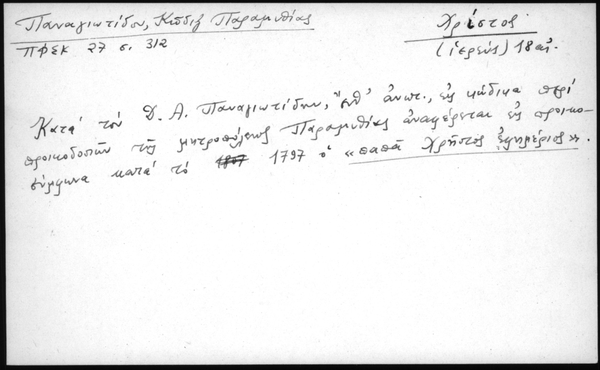 Παναγιωτίδου, Κώδιξ Παραμυθίας
Χρίστος
ΠΦΣΚ 27 σ. 312
(ἱερεὺς) 18 αἰ.
Κατά τόν Δ. Α. Παναγιωτίδην, ἔνθ' ἀνωτ., εἰς κώδικα περί
προικοδοσιῶν τῆς μητροπόλεως Παραμυθίας ἀναφέρεται εἰς προικο-
σύμφωνα κατά τό 1807 1797 ὁ «παπᾶ Χρῆστος ἐφημέριος».